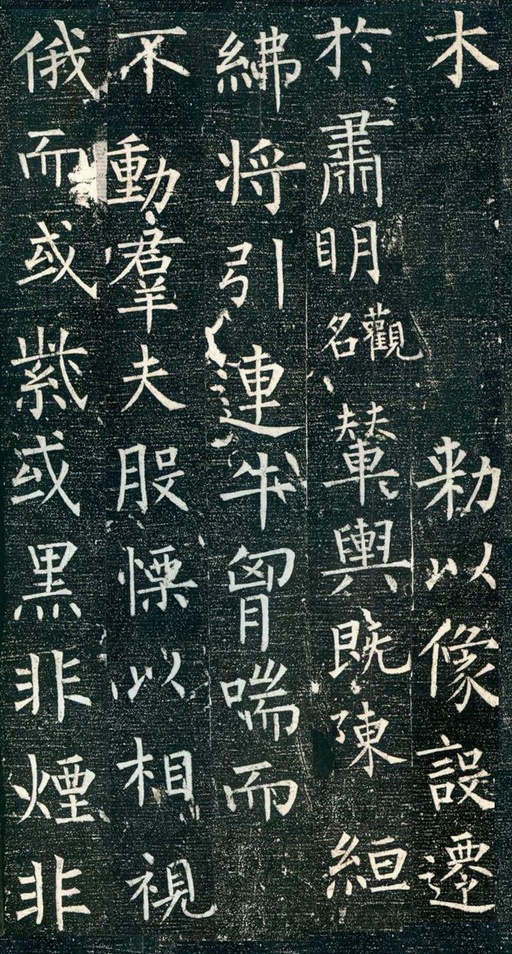 木 勑以像設遷
於肅眀觀名輦輿既陳絙
紼将引連牛胷喘而
不動羣夫股慄以相視
俄而或紫或黒非煙非